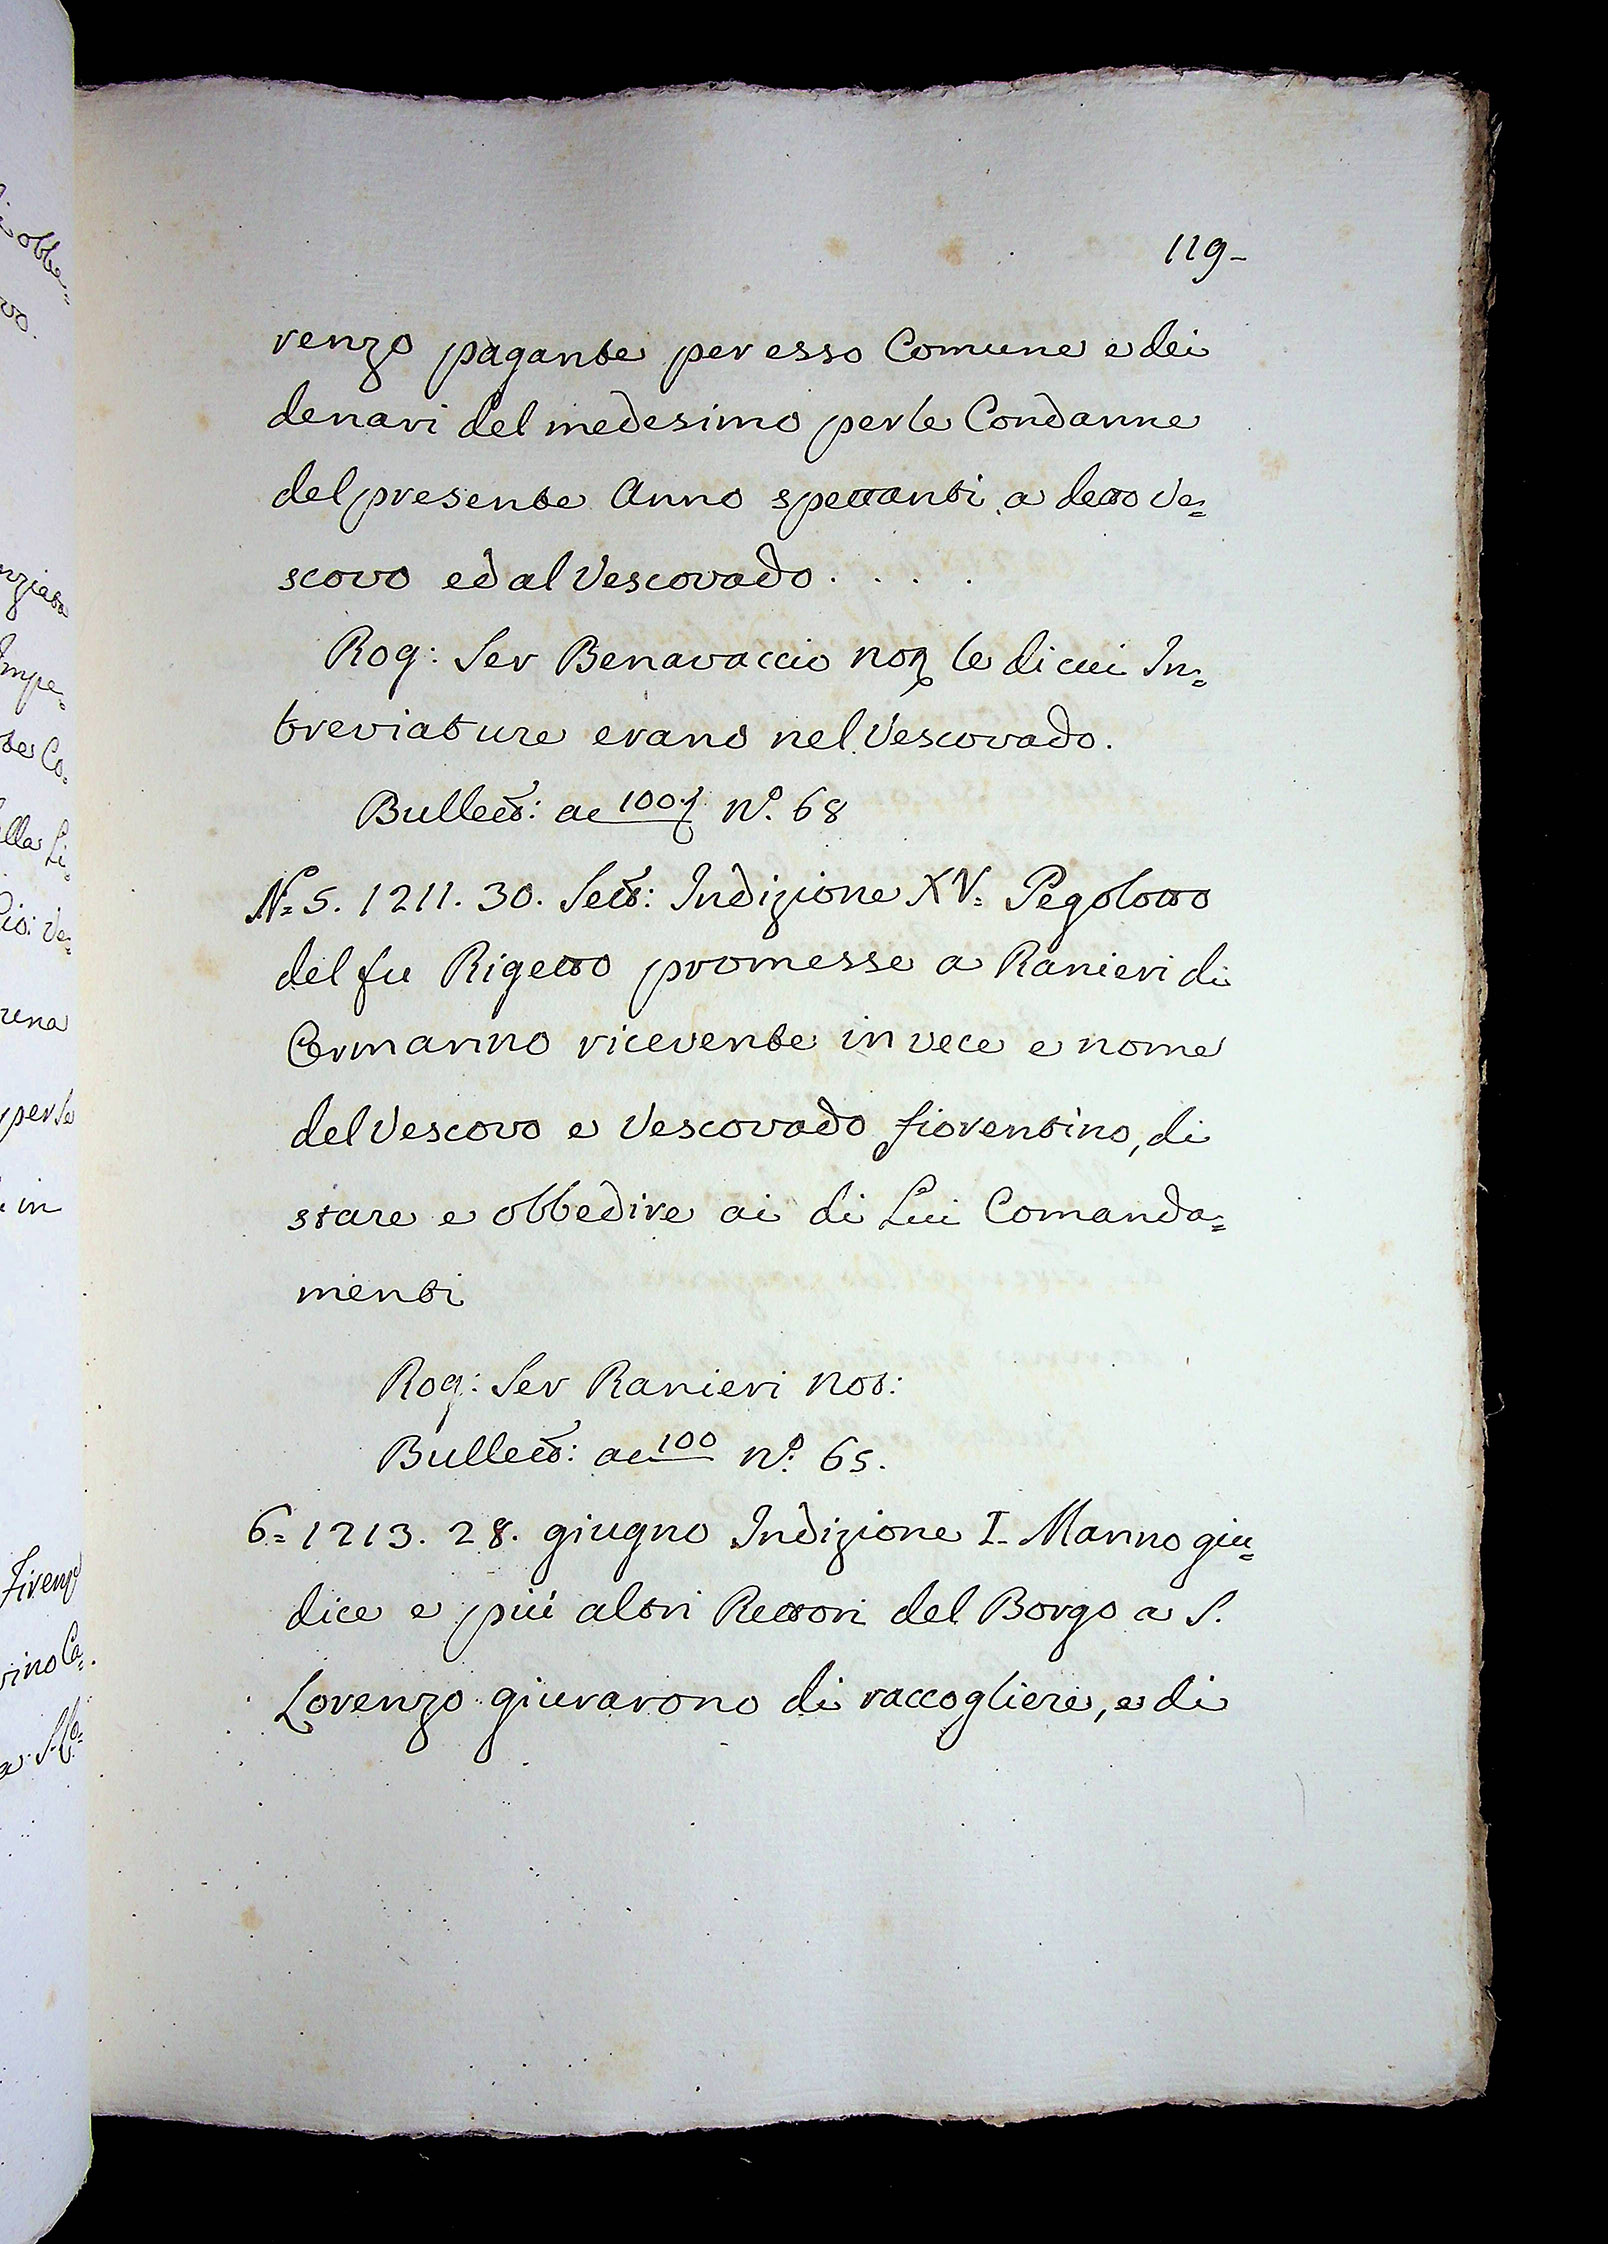 119-
renzo pagante per esso Comune e dei
denari del medesimo per le Condanne
del presente Anno spettanti a detto Ve=
scovo ed al Vescovado. . . . .
Rog: Ser Benavaccio not le di cui In=
breviature erano nel Vescovado.
Bullett: ac 100 N.o 68
N.o 5. 1211. 30. Sett: Indizione XV. Pegolotto
del fu Rigetto promesse a Ranieri di
Ermanno ricevente in vece e nome
del Vescovo e Vescovado fiorentino, di
stare e obbedire ai di Lui Comanda=
menti
Rog: Ser Ranieri not:
Bullett: ac 100 N.o 65.
6= 1213. 28. giugno Indizione I. Manno giu=
dice e più altri Rettori del Borgo a S.
Lorenzo giurarono di raccogliere, e di